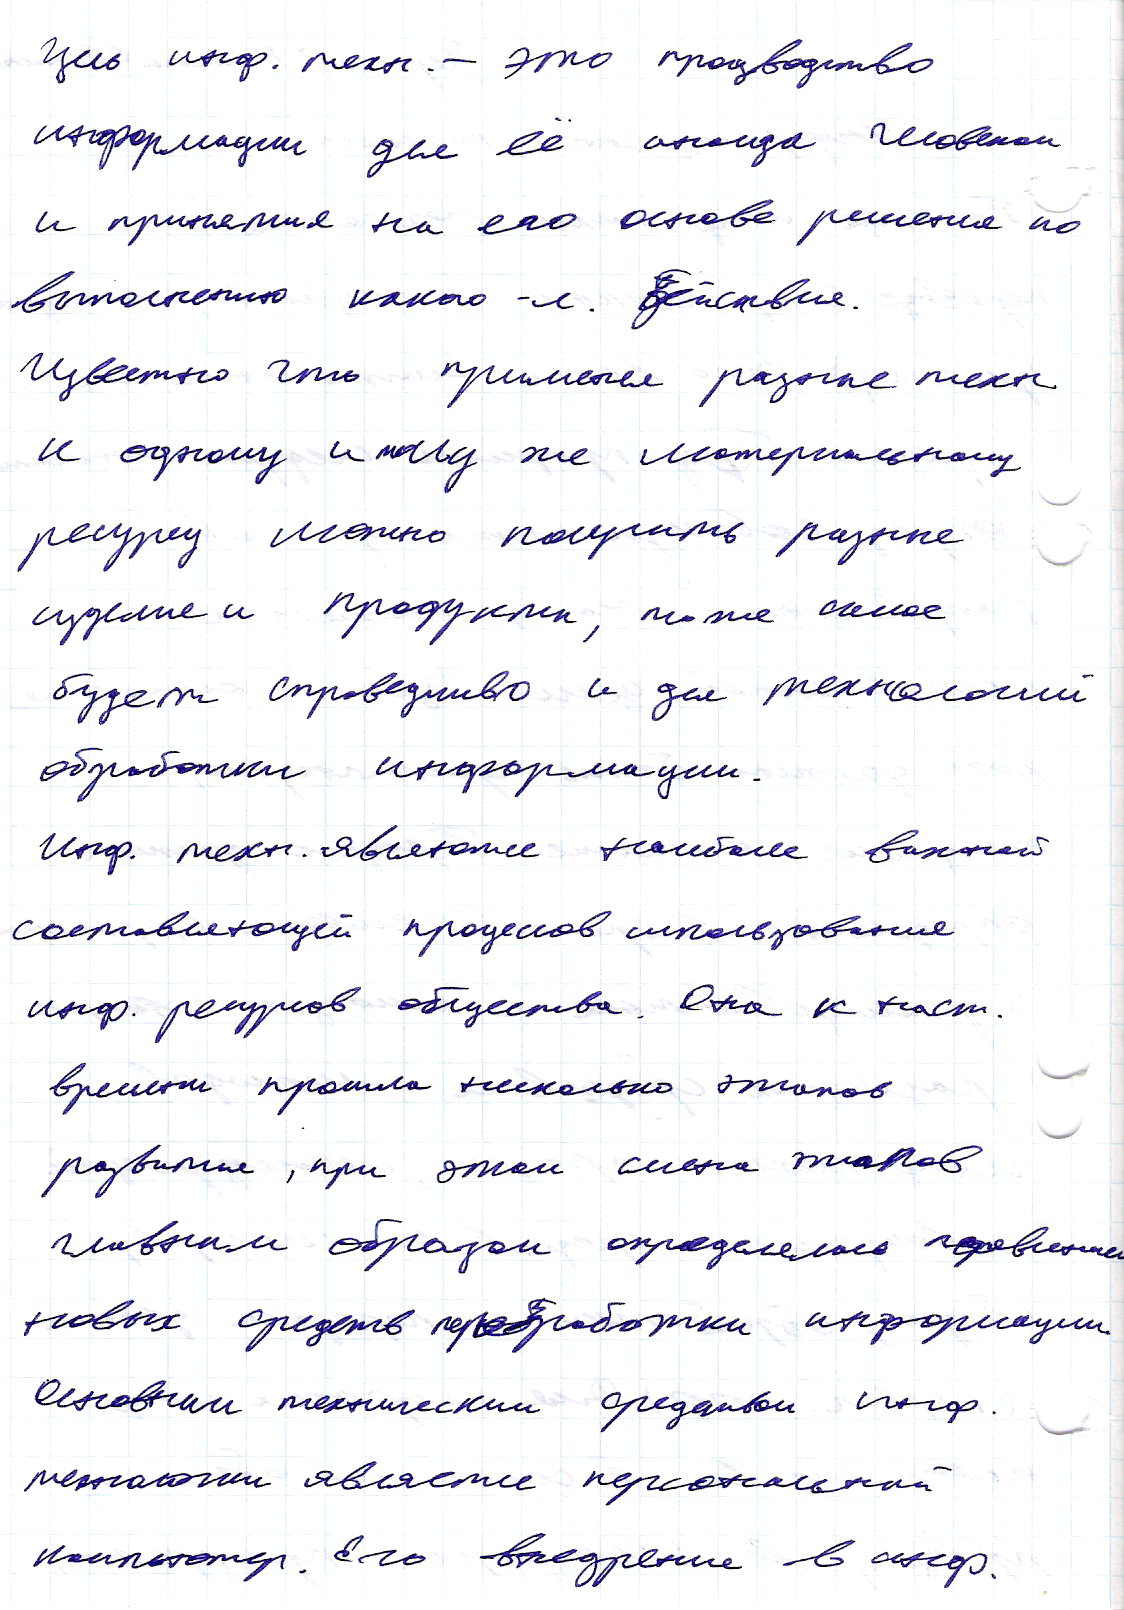 Цель инф. техн. – это производство
информации для её анализа человеком
и принятия на его основе решения по
выполнению какого-л. действия.
Известно что применяя разные техн
к одному и тому же материальному
ресурсу можно получить разные
изделие и продукты, то же самое
будет справедливо и для технологий
обработки информации.
Инф. техн. является наиболее важной
составляющей процессов использования
инф. ресурсов общества. Она к наст.
времени прошла несколько этапов
развития, при этом смена этапов
главным образом определялась появлением
новых средств переработки информации.
Основным техническим средством инф.
технологии является персональный
компьютер. Его внедрение в инф.